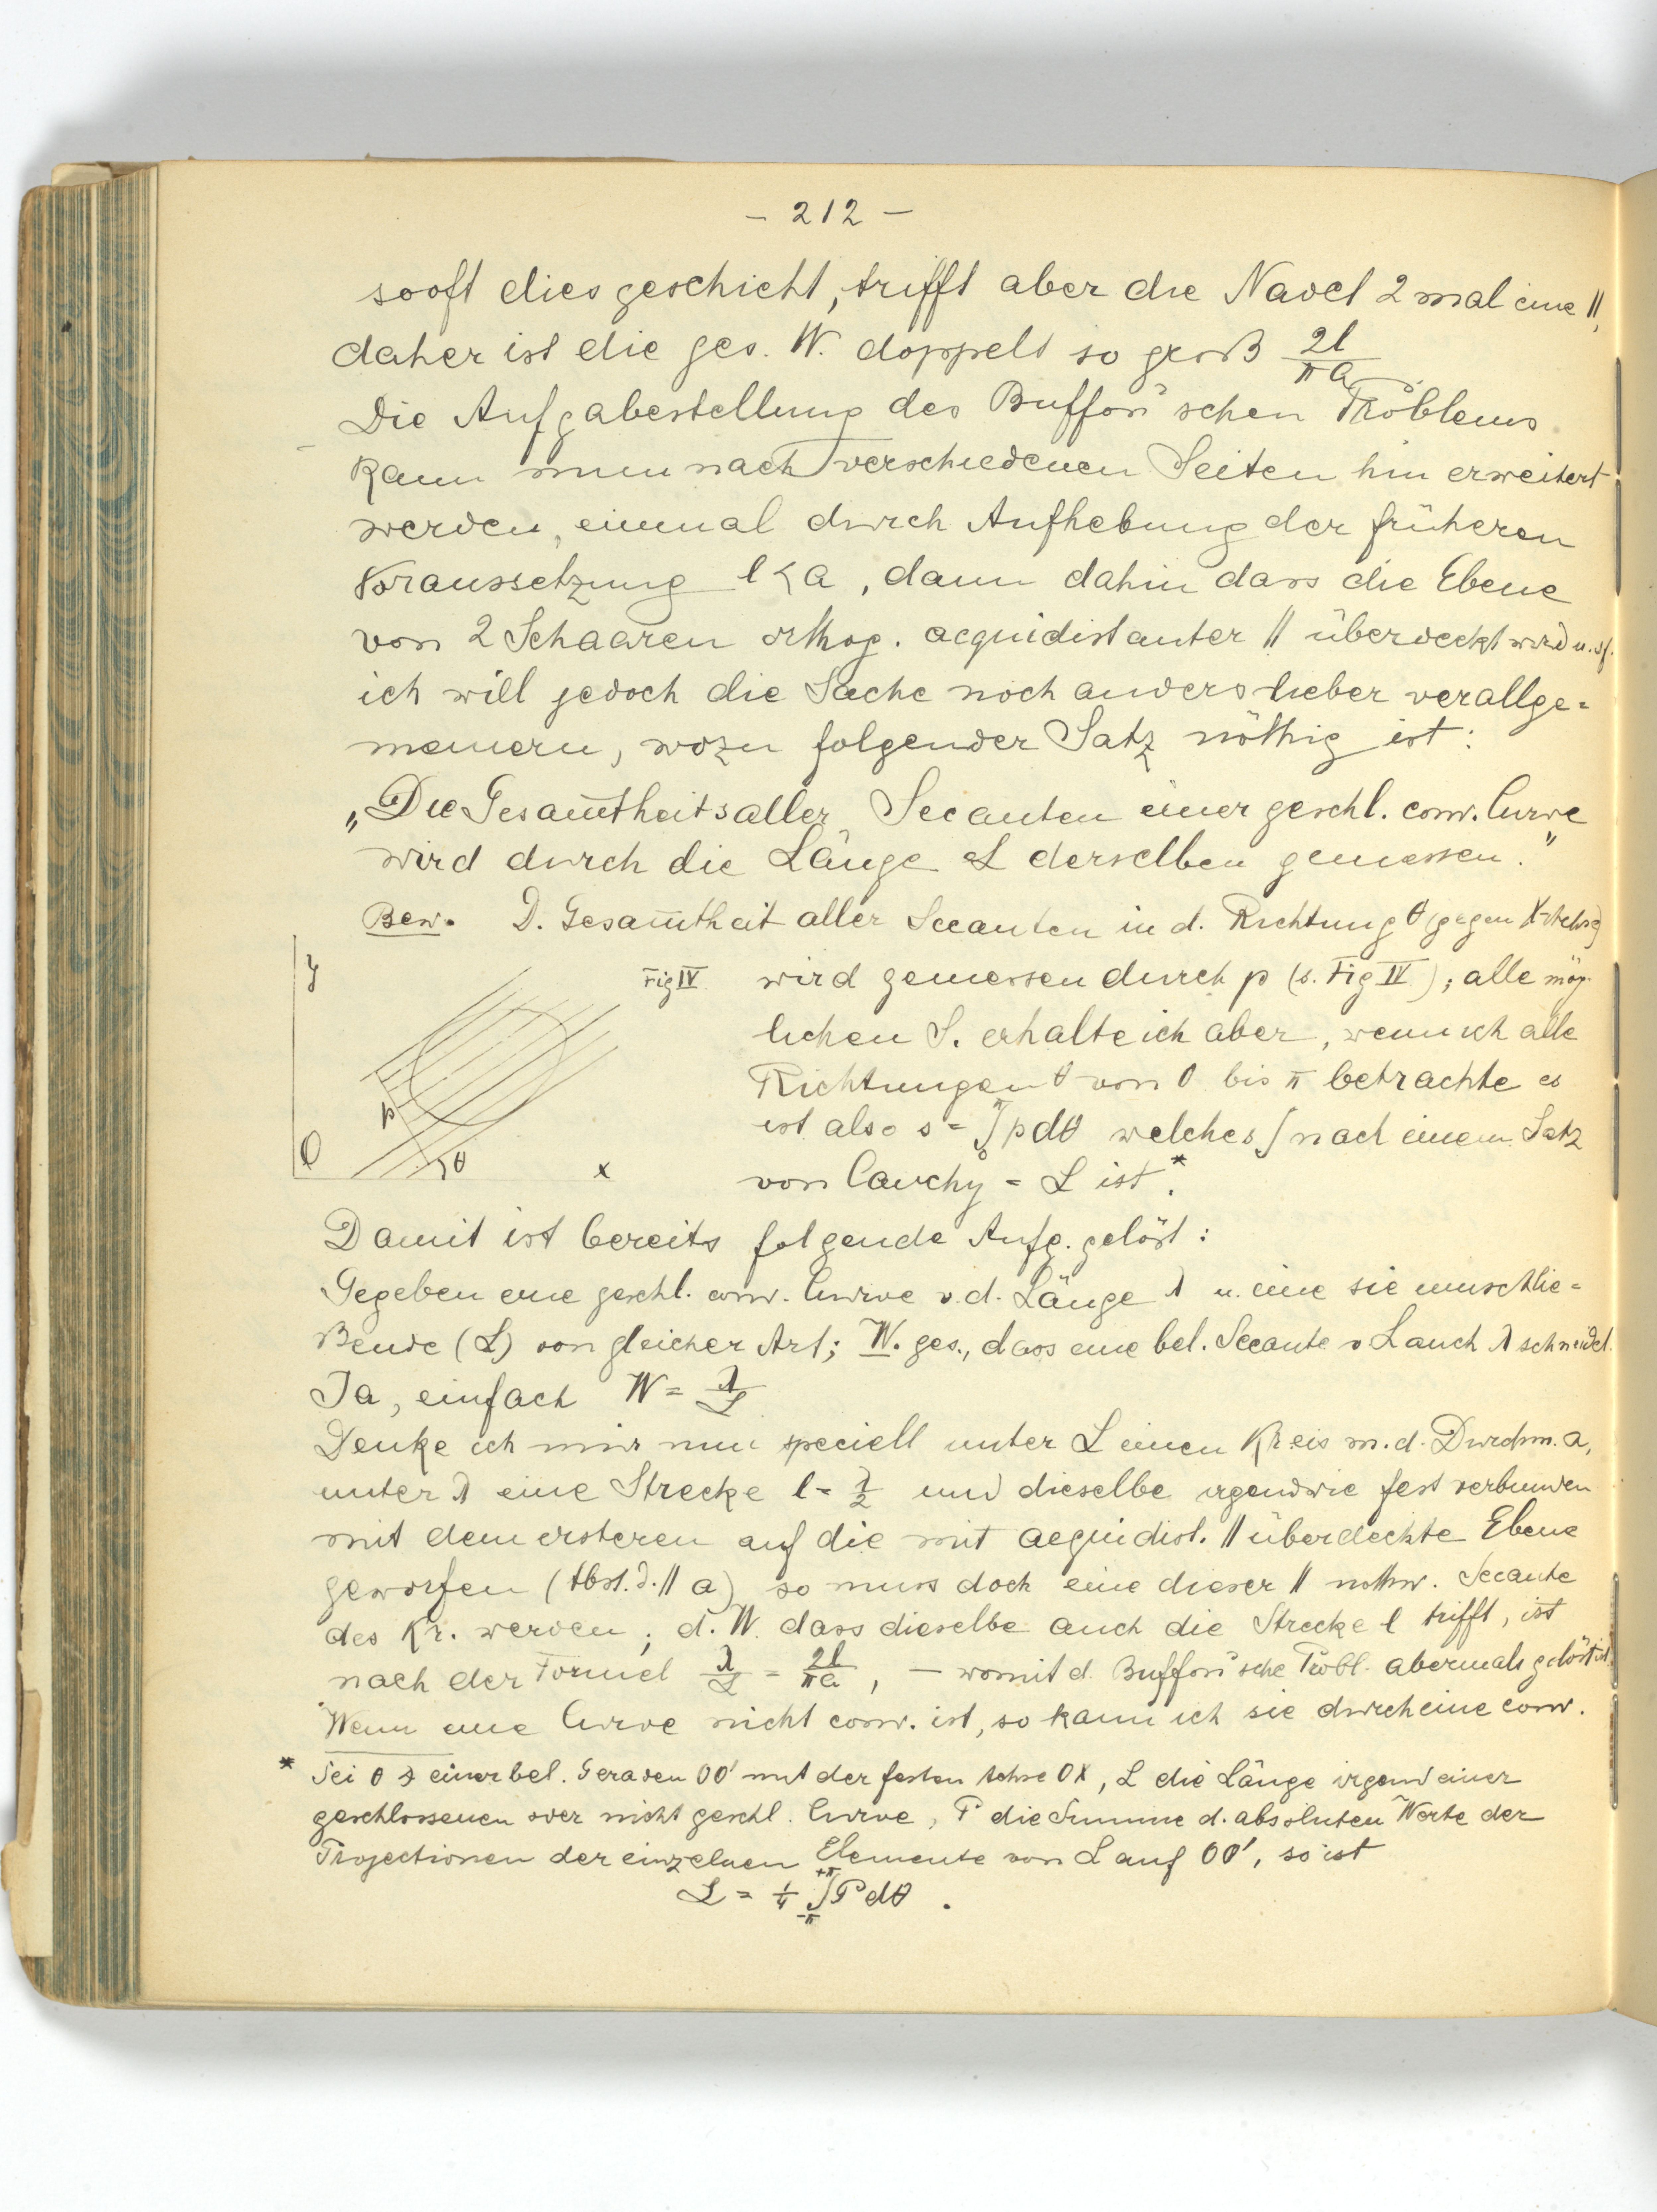 - 212 -
sooft dies geschieht, trifft aber die Nadel 2 mal eine ||,
daher ist die ges. W. doppelt so groß 2l/πa
Die Aufgabestellung des Buffon'schen Problems
kann nun nach verschiedenen Seiten hin erweitert
werden, einmal durch Aufhebung der früheren
Voraussetzung l<a, dann dahin dass die Ebene
von 2 Schaaren orthog. aequidistanter || überdeckt wird u.sf.
ich will jedoch die Sache noch anders lieber verallge=
meinern, wozu folgender Satz nöthig ist:
„Die Gesam̅theit aller Secanten einer geschl. conv. Curve
wird durch die Länge L derselben gemessen."
Bew. D. Gesam̅theit aller Secanten in d. Richtung θ (gegen X-Achse)
Fig IV wird gemessen durch p (s. Fig IV); alle mög-
lichen S. erhalte ich aber, wenn ich alle
Richtungen θ von 0 bis π betrachte es
ist also s = ∫₀^π p dθ welches ∫ nach einem Satz
von Cauchy = L ist.*
y
p
O
θ
x
Damit ist bereits folgende Aufg. gelöst:
Gegeben eine geschl. conv. Curve v. d. Länge λ u. eine sie umschlie=
ßende (L) von gleicher Art; W. ges., dass eine bel. Secante v L auch λ schneidet.
Ja, einfach W = λ/L
Denke ich mir nun speciell unter L einen Kreis m. d. Durchm. a,
unter λ eine Strecke l = λ/2 und dieselbe irgendwie fest verbunden
mit dem ersteren auf die mit aequidist. || überdeckte Ebene
geworfen (Abst. d. || a) so muss doch eine dieser || nothw. Secante
des Kr. werden; d. W. dass dieselbe auch die Strecke l trifft, ist
nach der Formel λ/L = 2l/πa, — womit d. Buffon'sche Probl. abermals gelöst ist.
Wenn eine Curve nicht conv. ist, so kann ich sie durch eine conv.
* Sei θ ∢ einer bel. Geraden OO' mit der festen Achse OX, L die Länge irgend einer
geschlossenen oder nicht geschl. Curve, P die Summe d. absoluten Werte der
Projectionen der einzelnen Elemente von L auf OO', so ist
L = 1/4 ∫₋π^+π P dθ.